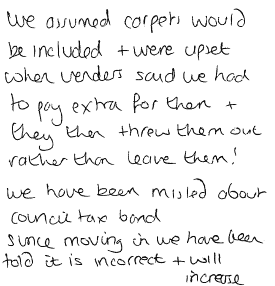 We assumed carpets would
be included + were upset
when venders said we had
to pay extra for them +
they then threw them out
rather than leave them!
We have been misled about
council tax band
Since moving in we have been
told it is incorrect + will
increase